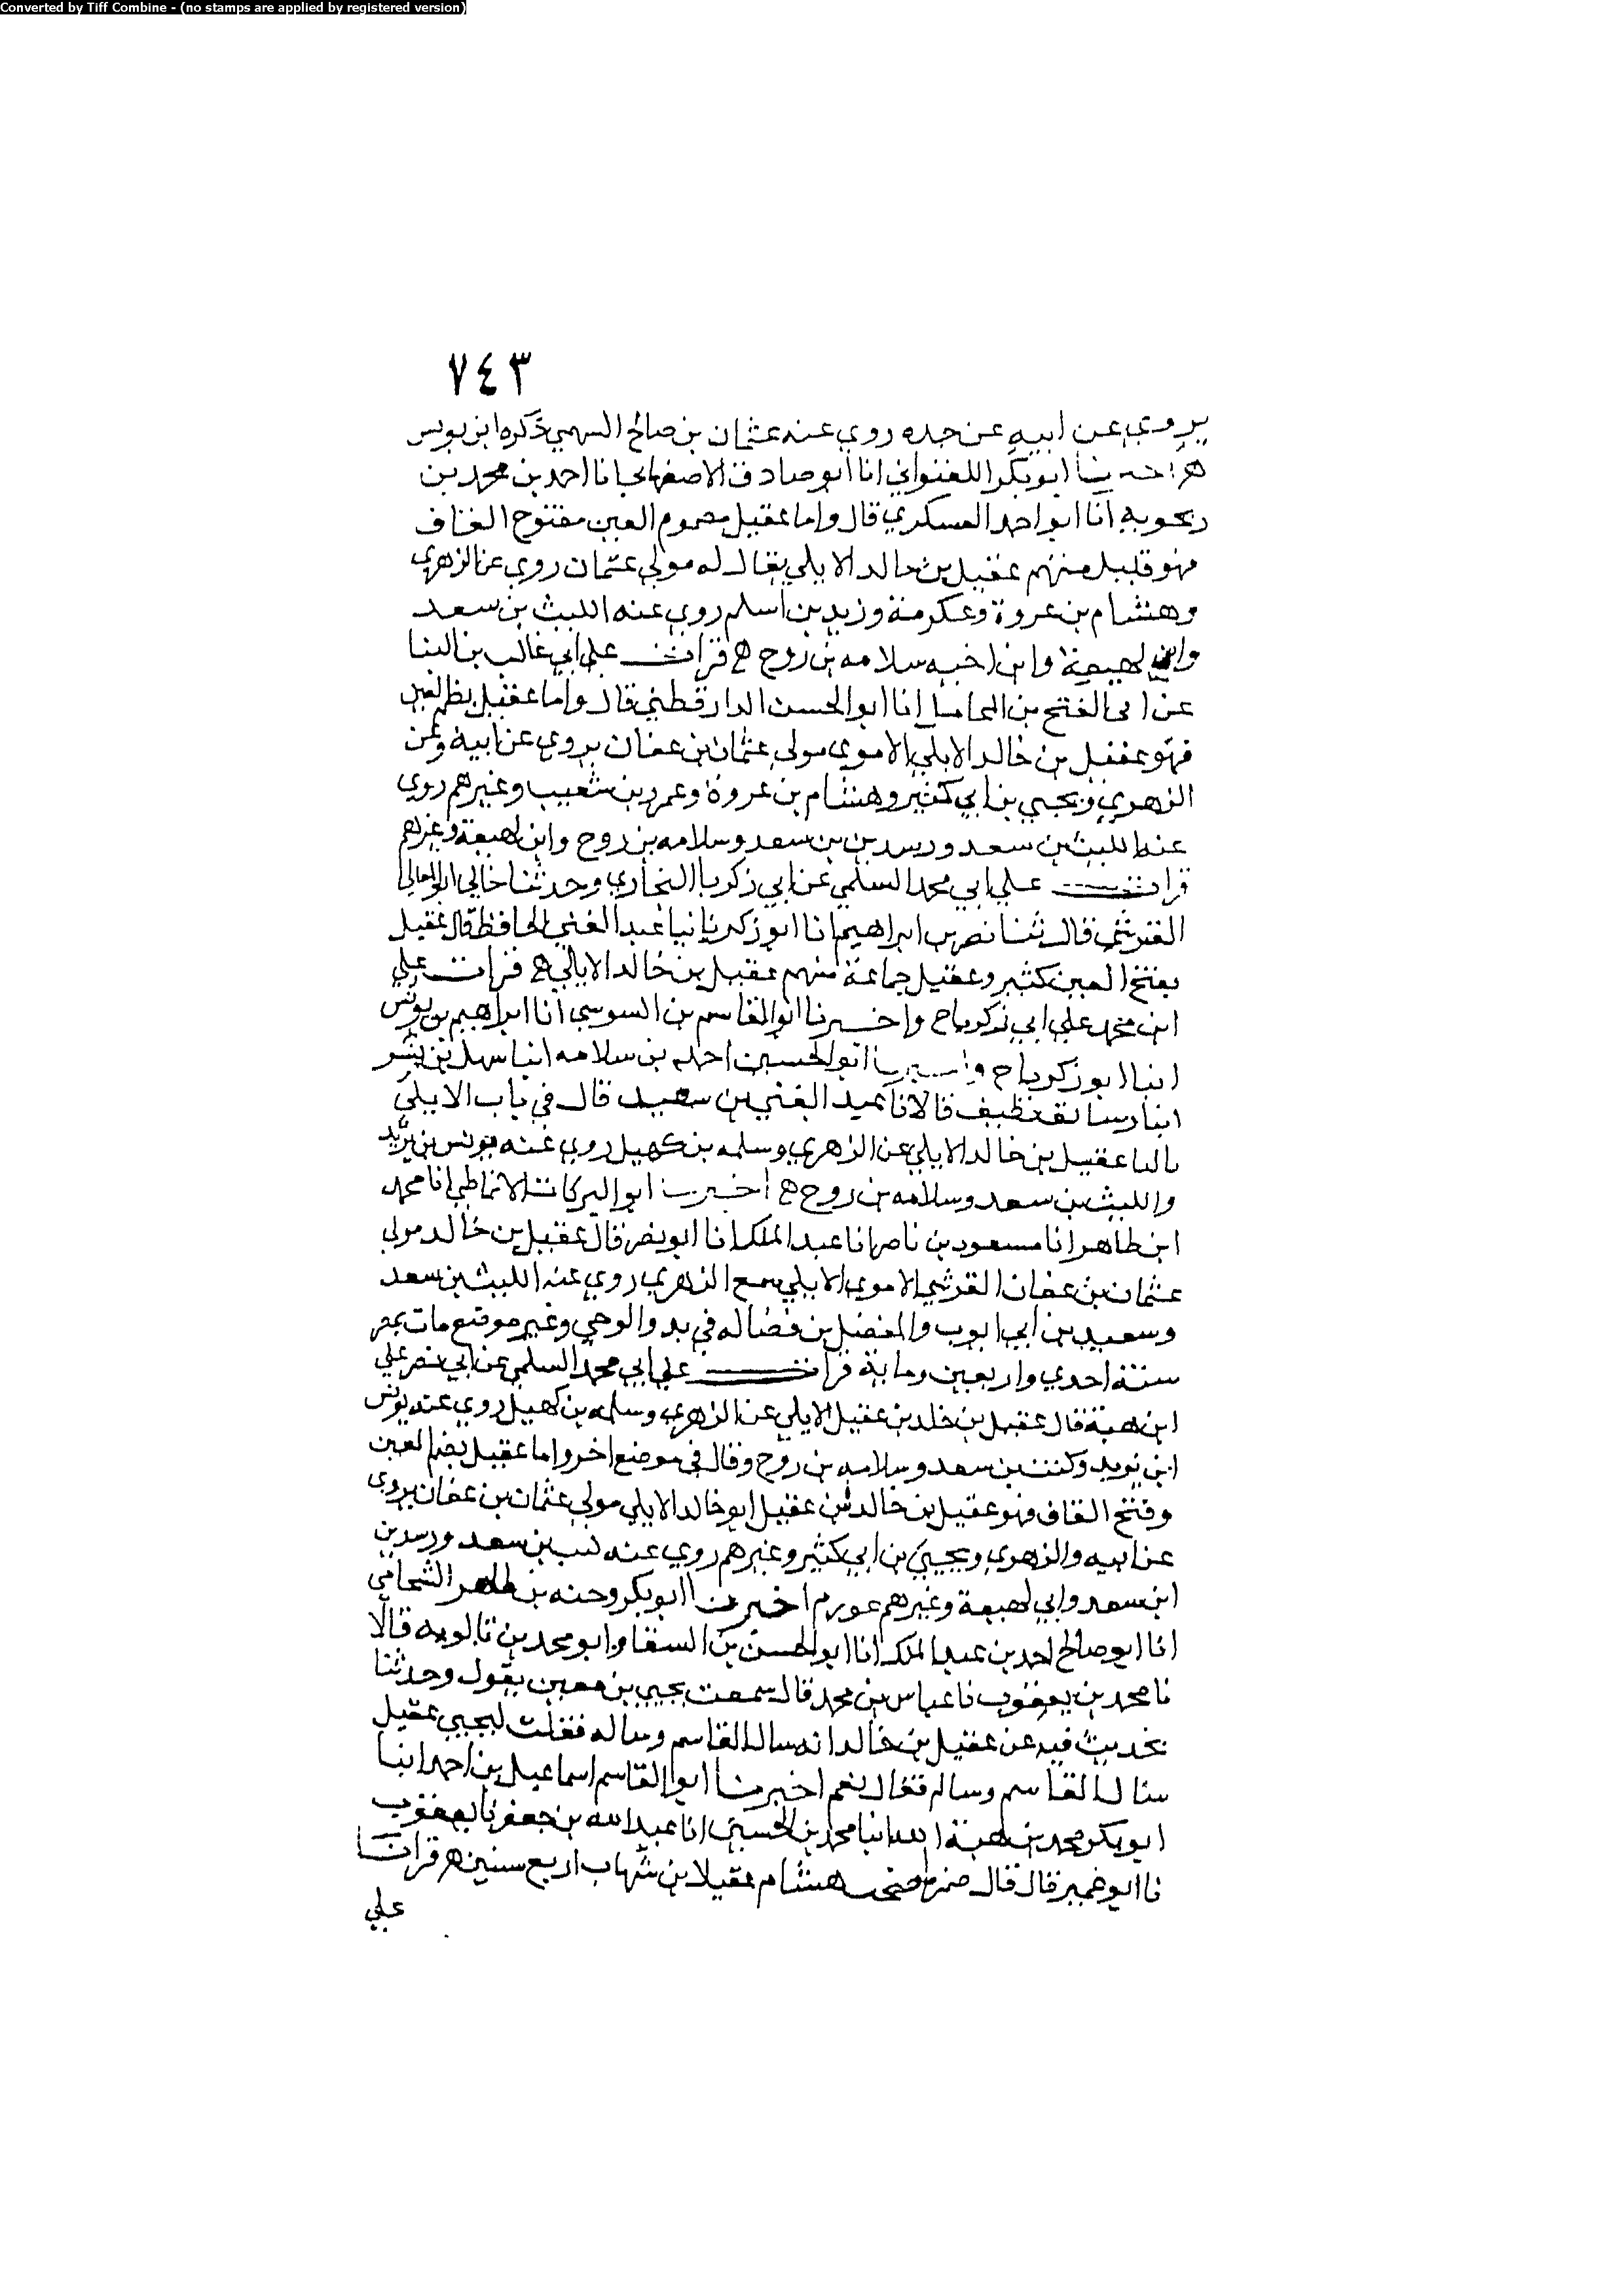 Converted by Tiff Combine - (no stamps are applied by registered version)
٧٤٣
يروي عن ابيه عن جده روي عنه عثمان بن صالح السهمي ذكره ابن يونس
ابو بكر اللفتواني انا ابو صادق الاصفهاني انا احمد بن محمد بن
زنجويه انا ابو احمد العسكري قال واما عقيل مضموم العين مفتوح القاف
فهو قليل منهم عقيل بن خالد الايلي يقال له مولي عثمان روي عن الزهري
وهشام بن عروة وعكرمة وزيد بن اسلم روي عنه الليث بن سعد
وابن لهيعة وابن اخيه سلامه بن روح ه قرات علي ابي غالب بن البنا
عن ابي الفتح بن المحاملي انا ابو الحسن الدارقطني قال واما عقيل بضم العين
فهو عقيل بن خالد الايلي الاموي مولي عثمان بن عفان يروي عن ابيه وعن
الزهري ويحيي بن ابي كثير وهشام بن عروة وعمرو بن شعيب وغيرهم روي
عنه الليث بن سعد ورسدين بن سعد وسلامه بن روح وابن لهيعة وغيرهم
قرات علي ابي محمد السلمي عن ابي زكريا البخاري وحدثنا خالي ابو المعالي
القرشي قال ثنا نصر بن ابراهيم انا ابو زكريا انبا عبد الغني الحافظ قال عقيل
بفتح العين كثير وعقيل جماعة منهم عقيل بن خالد الايلي ه قرات علي
ابن محمد علي ابي زكريا ح واخبرنا ابو القاسم بن السوسي انا ابراهيم بن يونس
انبا ابو زكريا ح ابو الحسين احمد بن سلامه انبا سهل بن بشر
انبا رسا بن نظيف قالا نا عبد الغني بن سعيد قال في باب الايلي
باليا عقيل بن خالد الايلي عن الزهري وسلمه بن كهيل روي عنه يونس بن يزيد
والليث بن سعد وسلامه بن روح ه اخبرنا ابو البركات الانماطي انا محمد
ابن طاهر انا مسعود بن ناصر انا عبد الملك انا ابو نصر قال عقيل بن خالد مولي
عثمان بن عفان القرشي الاموي الايلي سمع الزهري روي عنه الليث بن سعد
وسعيد بن ابي ايوب والمفضل بن فضاله في بدو الوحي وغير موضع مات بمصر
سنة احدي واربعين وماية قرات علي ابي محمد السلمي عن ابي نصر علي
ابن هبة قال عقيل بن خلد بن عقيل الايلي عن الزهري وسلمه بن كهيل روي عنه يونس
ابن يزيد بن سعد وسلامه بن روح وقال في موضع اخر واما عقيل بضم العين
وفتح القاف فهو عقيل بن خالد بن عقيل ابو خالد الايلي مولي عثمان بن عفان يروي
عن ابيه والزهري ويحيي بن ابي كثير وغيرهم روي عنه ليث بن سعد ورسدين
ابن سعد وابي لهيعة وغيرهم اخبرنا ابو بكر وجيه بن طاهر الشحامي
انا ابو صالح احمد بن عبد الملك انا ابو الحسن بن السقا وابو محمد بن بالويه قالا
نا محمد بن يعقوب نا عباس بن محمد قال سمعت يحيي بن معين يقول وحدثنا
بحديث فيه عن عقيل بن خالد انه سال القاسم وساله فقلت ليحيي عقيل
سال القاسم وسالم فقال نعم اخبرنا ابو القاسم اسماعيل بن احمد انبا
ابو بكر محمد بن هبة الله انبا محمد بن الحسين انا عبد الله بن جعفر نا يعقوب
نا ابو عمير قال قال ضمره صحب هشام عقيلا بن شهاب اربع سنين ه قرات
علي